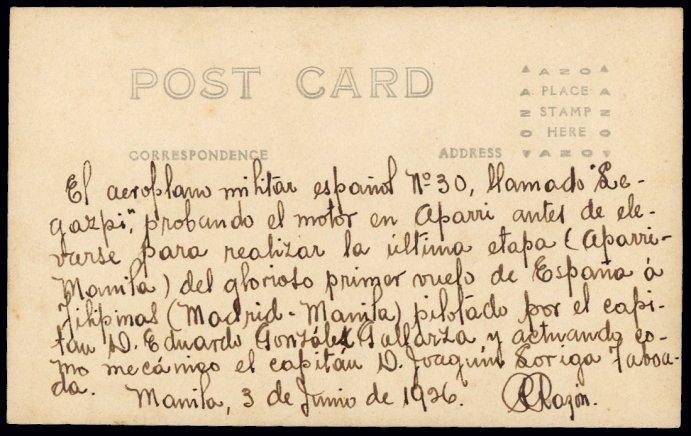 POST CARD
AZO
PLACE
STAMP
HERE
AZO
CORRESPONDENCE
ADDRESS
El aeroplano militar español Nº 30, llamado "Le-
gazpi", probando el motor en Aparri antes de ele-
varse para realizar la última etapa (Aparri-
Manila) del glorioso primer vuelo de España á
Filipinas (Madrid-Manila) pilotado por el capi-
tán D. Eduardo González Gallarza y actuando co-
mo mecánico el capitán D. Joaquín Loriga Taboa-
da. Manila, 3 de Junio de 1926. Razón.